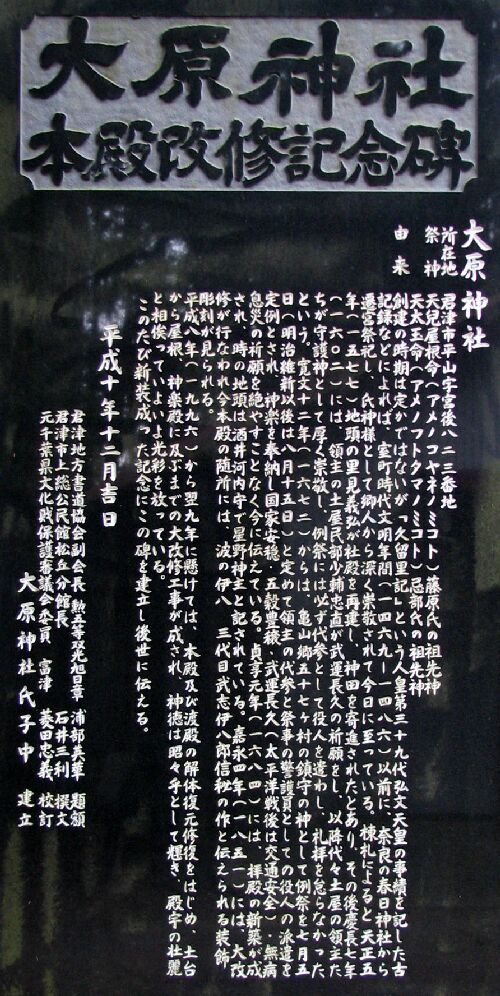 大原神社
本殿改修記念碑
大原神社
所在地　君津市平山字宮後八二三番地
祭神　天児屋根命(アメノコヤネノミコト)藤原氏の祖先神
天太玉命(アメノフトタマノミコト)忌部氏の祖先神
由来　創建の時期は定かではないが「久留里記」という人皇第三十九代弘文天皇の事績を記した古
記録などによれば、室町時代文明年間(一四六九ー一四八六)以前に、奈良の春日神社から
遷宮祭祀し、氏神様として郷人から深く崇敬されて今日に至っている。棟札によると天正五
年(一五七七)地頭の里見義弘が社殿を再建し、神田を寄進されたとあり、その後慶長七年
(一六〇二)には、領主の土屋民部少輔忠直が武運長久の祈願をし、以降代々土屋の領主た
ちが守護神として厚く崇敬し、例祭には必ず代参として役人を遣わし、礼拝を怠らなかった
という。寛文十二年(一六七二)からは、亀山郷五十七ヶ村の鎮守の神として例祭を七月五
日(明治維新以後は八月十五日)と定めて領主の代参と祭事の警護員としての役人の派遣を
定例とされ、神楽を奉納し国家安穏・五穀豊穣・武運長久(太平洋戦後は交通安全)・無病
息災の祈願を絶やすことなく今に伝えている。貞享元年(一六八四)には、拝殿の新築が成
され、時の地頭は酒井河内守で星野神主と記されている。嘉永四年(一八五一)には、大改
修が行なわれ今本殿の随所には、波の伊八　三代目武志伊八郎信秘の作と伝えられる装飾
彫刻が見られる。
平成八年(一九九六)から翌九年に懸けては、本殿及び渡殿の解体復元修復をはじめ、土台
から屋根、神楽殿に及ぶまでの大改修工事が成され、神徳は昭々乎として輝き、殿宇の壮麗
と相俟っていよいよ光彩を放っている。
このたび新装成った記念にこの碑を建立し後世に伝える。
平成十年十二月吉日
君津地方書道協会副会長　勲五等双光旭日章　浦部英華　題額
君津市上総公民館松丘分館長　石井三利　撰文
元千葉県文化財保護審議会委員　富津　菱田忠義　校訂
大原神社氏子中　建立